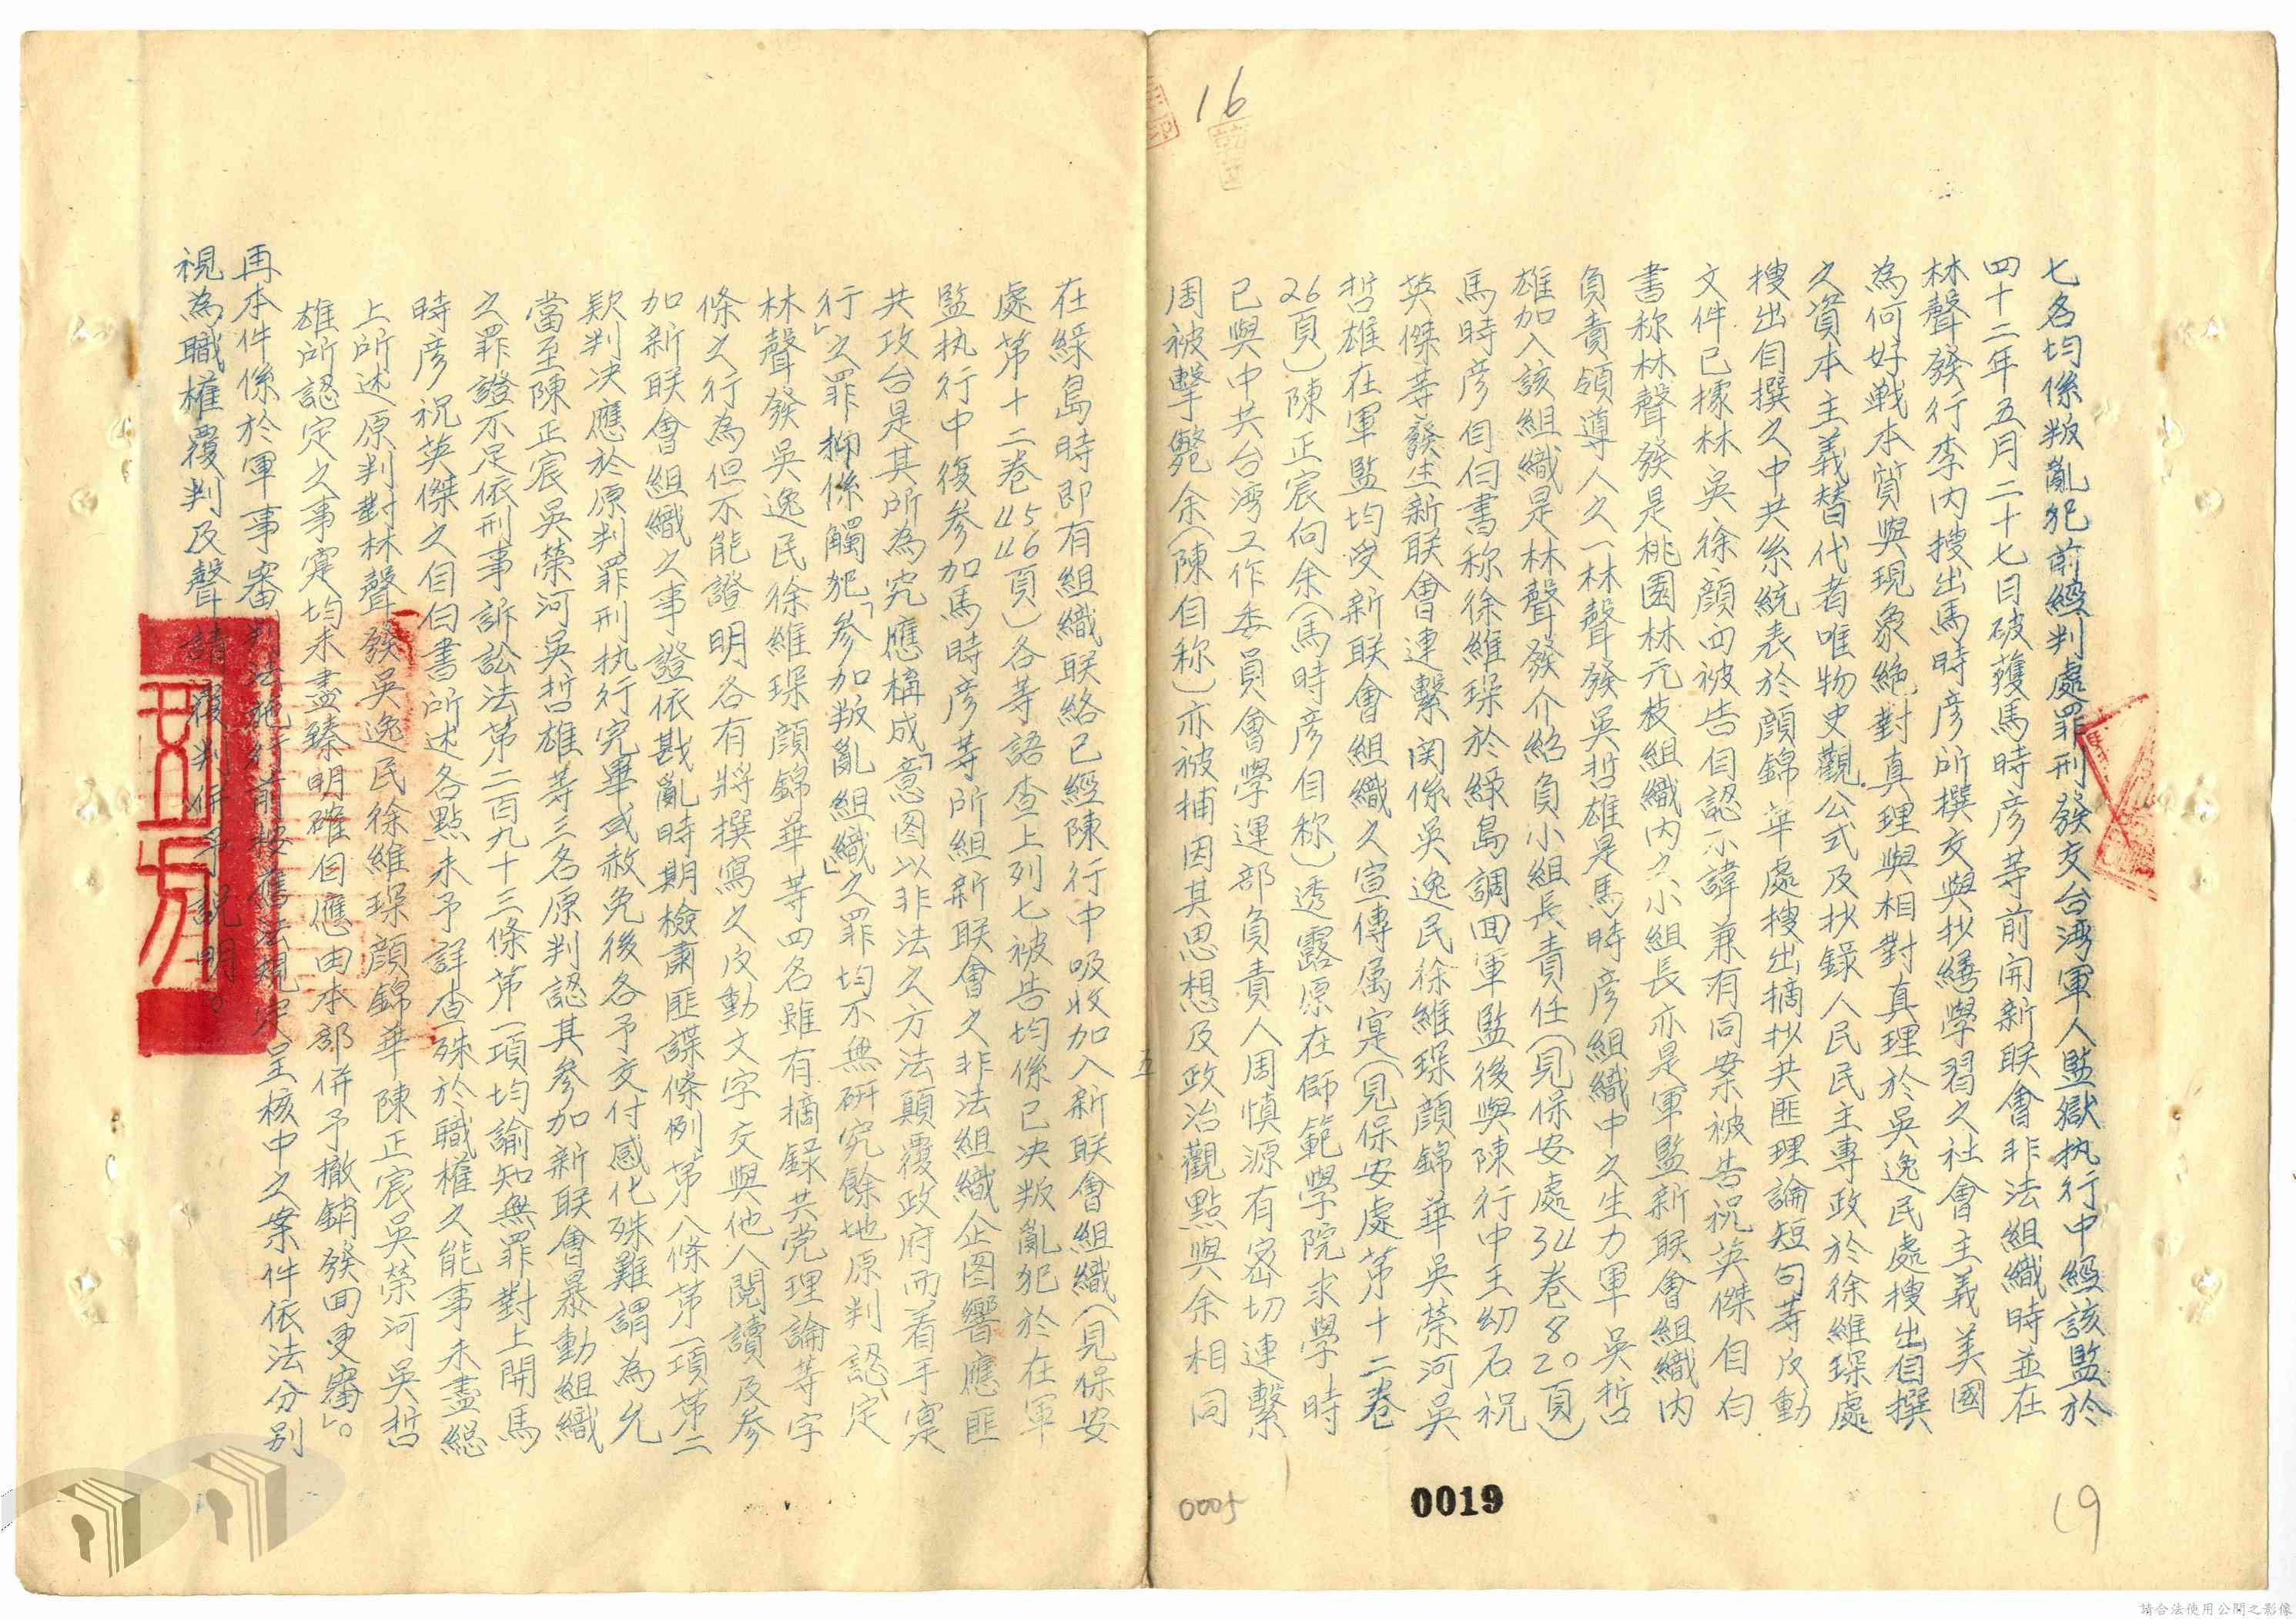 16
七名均係叛亂犯前經判處罪刑發交台湾軍人監獄执行中經該監於
四十二年五月二十七日破獲馬時彦等前開新联會非法組織時並在
林聲發行李内搜出馬時彦所撰交與抄繕學習之社會主義美國
為何好戰本質與現象絶對真理與相對真理於吳逸民處搜出自撰
之資本主義替代者唯物史觀公式及抄錄人民民主專政於徐維琛處
搜出自撰之中共系統表於顔錦華處搜出摘抄共匪理論短句等反動
文件已據林吳徐顔四被告自認不諱兼有同案被告祝英傑自白
書称林聲發是桃園林元枝組織内之小組長亦是軍監新联會組織内
負責領導人之一林聲發吳哲雄是馬時彦組織中之生力軍吳哲
雄加入該組織是林聲發介紹負小組長責任(見保安處34卷820頁)
馬時彦自白書称徐維琛於綠島調回軍監後與陳行中王幼石祝
英傑等發生新联會連繫関係吳逸民徐維琛顔錦華吳榮河吳
哲雄在軍監均受新联會組織之宣傳属寔(見保安處第十二卷
26頁)陳正宸向余(馬時彦自称)透露原在師範學院求學時
已與中共台湾工作委員會學運部負責人周慎源有密切連繫
周被擊斃余(陳自称)亦被捕因其思想及政治觀點與余相同
0005
0019
19
五
在綠島時即有組織联絡已經陳行中吸收加入新联會組織(見保安
處第十二卷4546頁)各等語查上列七被告均係已決叛亂犯於在軍
監执行中復參加馬時彦等所組新联會之非法組織企图響應匪
共攻台是其所為究應構成「意图以非法之方法顛覆政府而着手寔
行」之罪抑係觸犯「參加叛亂組織」之罪均不無研究餘地原判認定
林聲發吳逸民徐維琛顔錦華等四名雖有摘錄共党理論等字
條之行為但不能證明各有將撰寫之反動文字交與他人閱讀及參
加新联會組織之事證依戡亂時期檢肅匪諜條例第八條第一項第二
欵判决應於原判罪刑执行完畢或赦免後各予交付感化殊難謂為允
當至陳正宸吳榮河吳哲雄等三名原判認其參加新联會暴動組織
之罪證不足依刑事訴訟法第二百九十三條第一項均諭知無罪對上開馬
時彦祝英傑之自白書所述各點未予詳查殊於職權之能事未盡綜
上所述原判對林聲發吳逸民徐維琛顔錦華陳正宸吳榮河吳哲
雄所認定之事寔均未盡臻明確自應由本部併予撤銷發回更審」。
再本件係於軍事審判法施行前按舊法規定呈核中之案件依法分別
視為職權覆判及聲請覆判併予説明。
請合法使用公開之影像